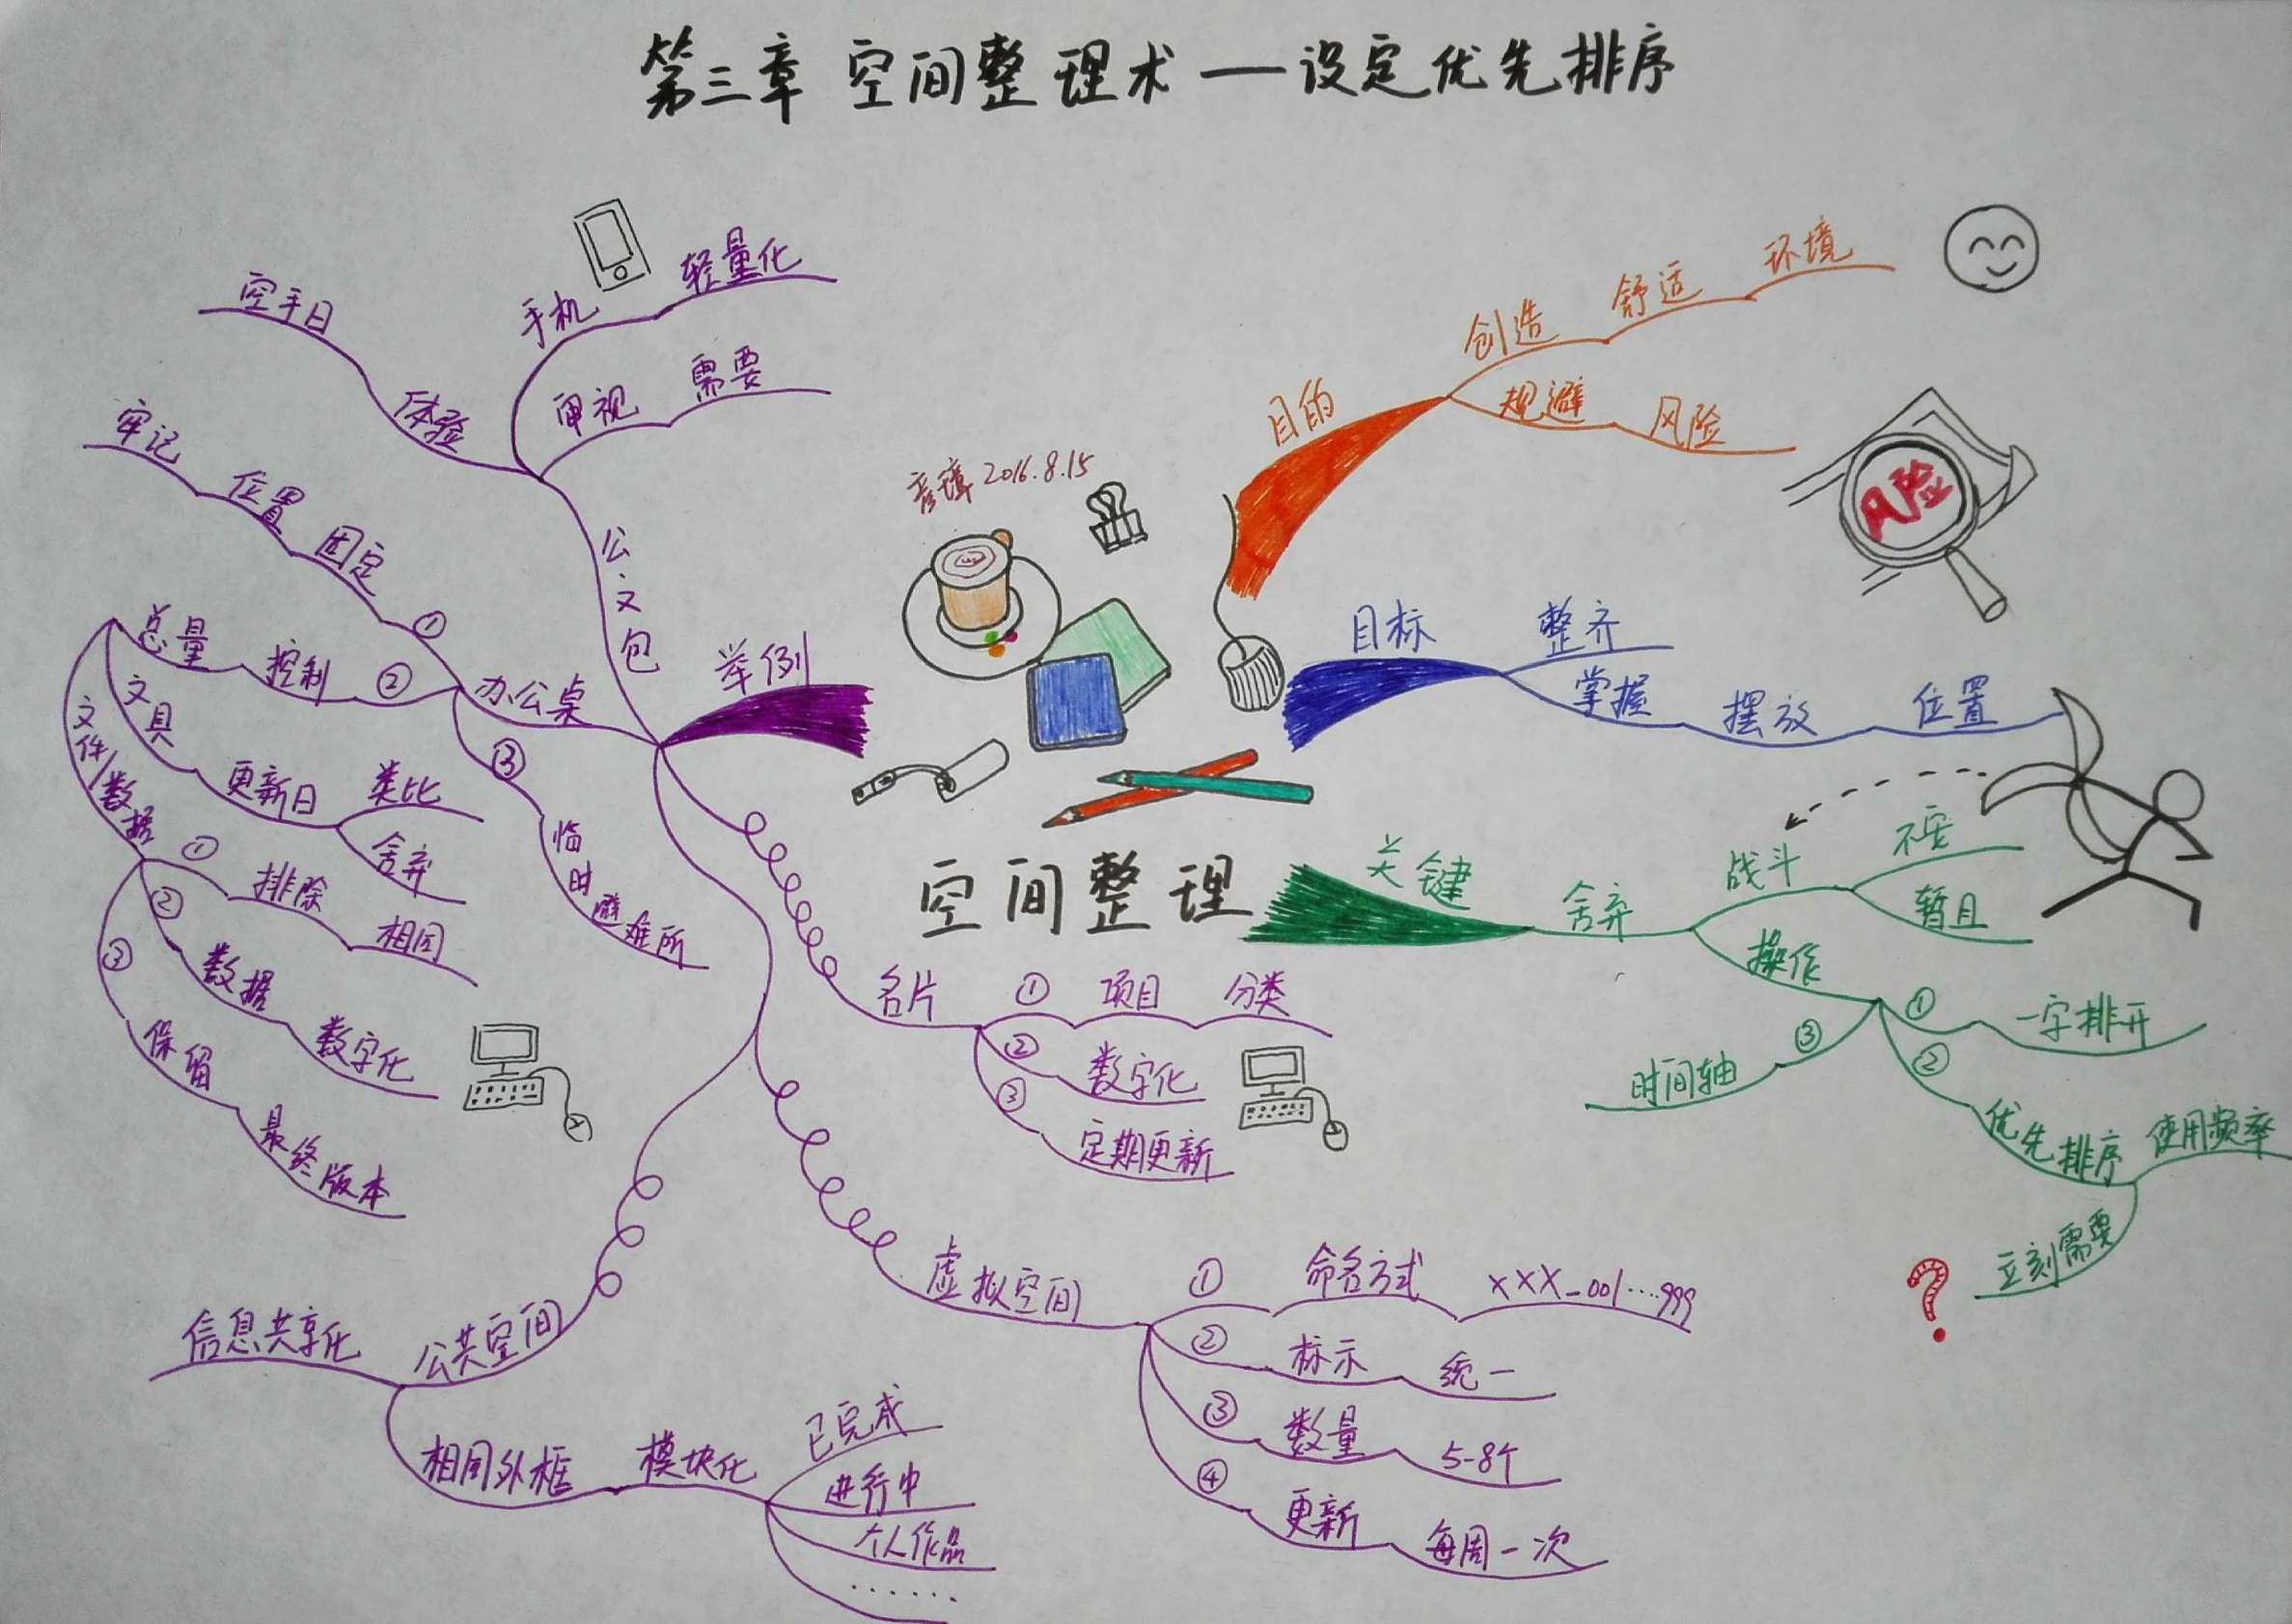 第三章 空间整理术——设定优先排序
2016.8.15
空间整理
目的
创造 舒适 环境
规避 风险
风险
目标
整齐
掌握 摆放 位置
关键
舍弃
战斗
不安
暂且
操作
① 一字排开
② 优先排序
使用频率
立刻需要
?
③ 时间轴
举例
公文包
手机 轻量化
审视 需要
体验 空手日
办公桌
① 固定 位置 牢记
② 控制 总量
文具
更新日
类比
舍弃
文件/数据
① 排除 相同
② 数据 数字化
③ 保留 最终版本
③ 临时避难所
名片
① 项目 分类
② 数字化
③ 定期更新
虚拟空间
① 命名方式 XXX_001…999
② 标示 统一
③ 数量 5-8个
④ 更新 每周一次
公共空间
信息共享化
相同外框 模块化
已完成
进行中
个人作品
……